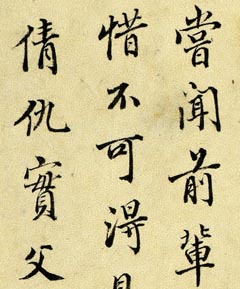 嘗聞前輩
惜不可得見
倩仇實父